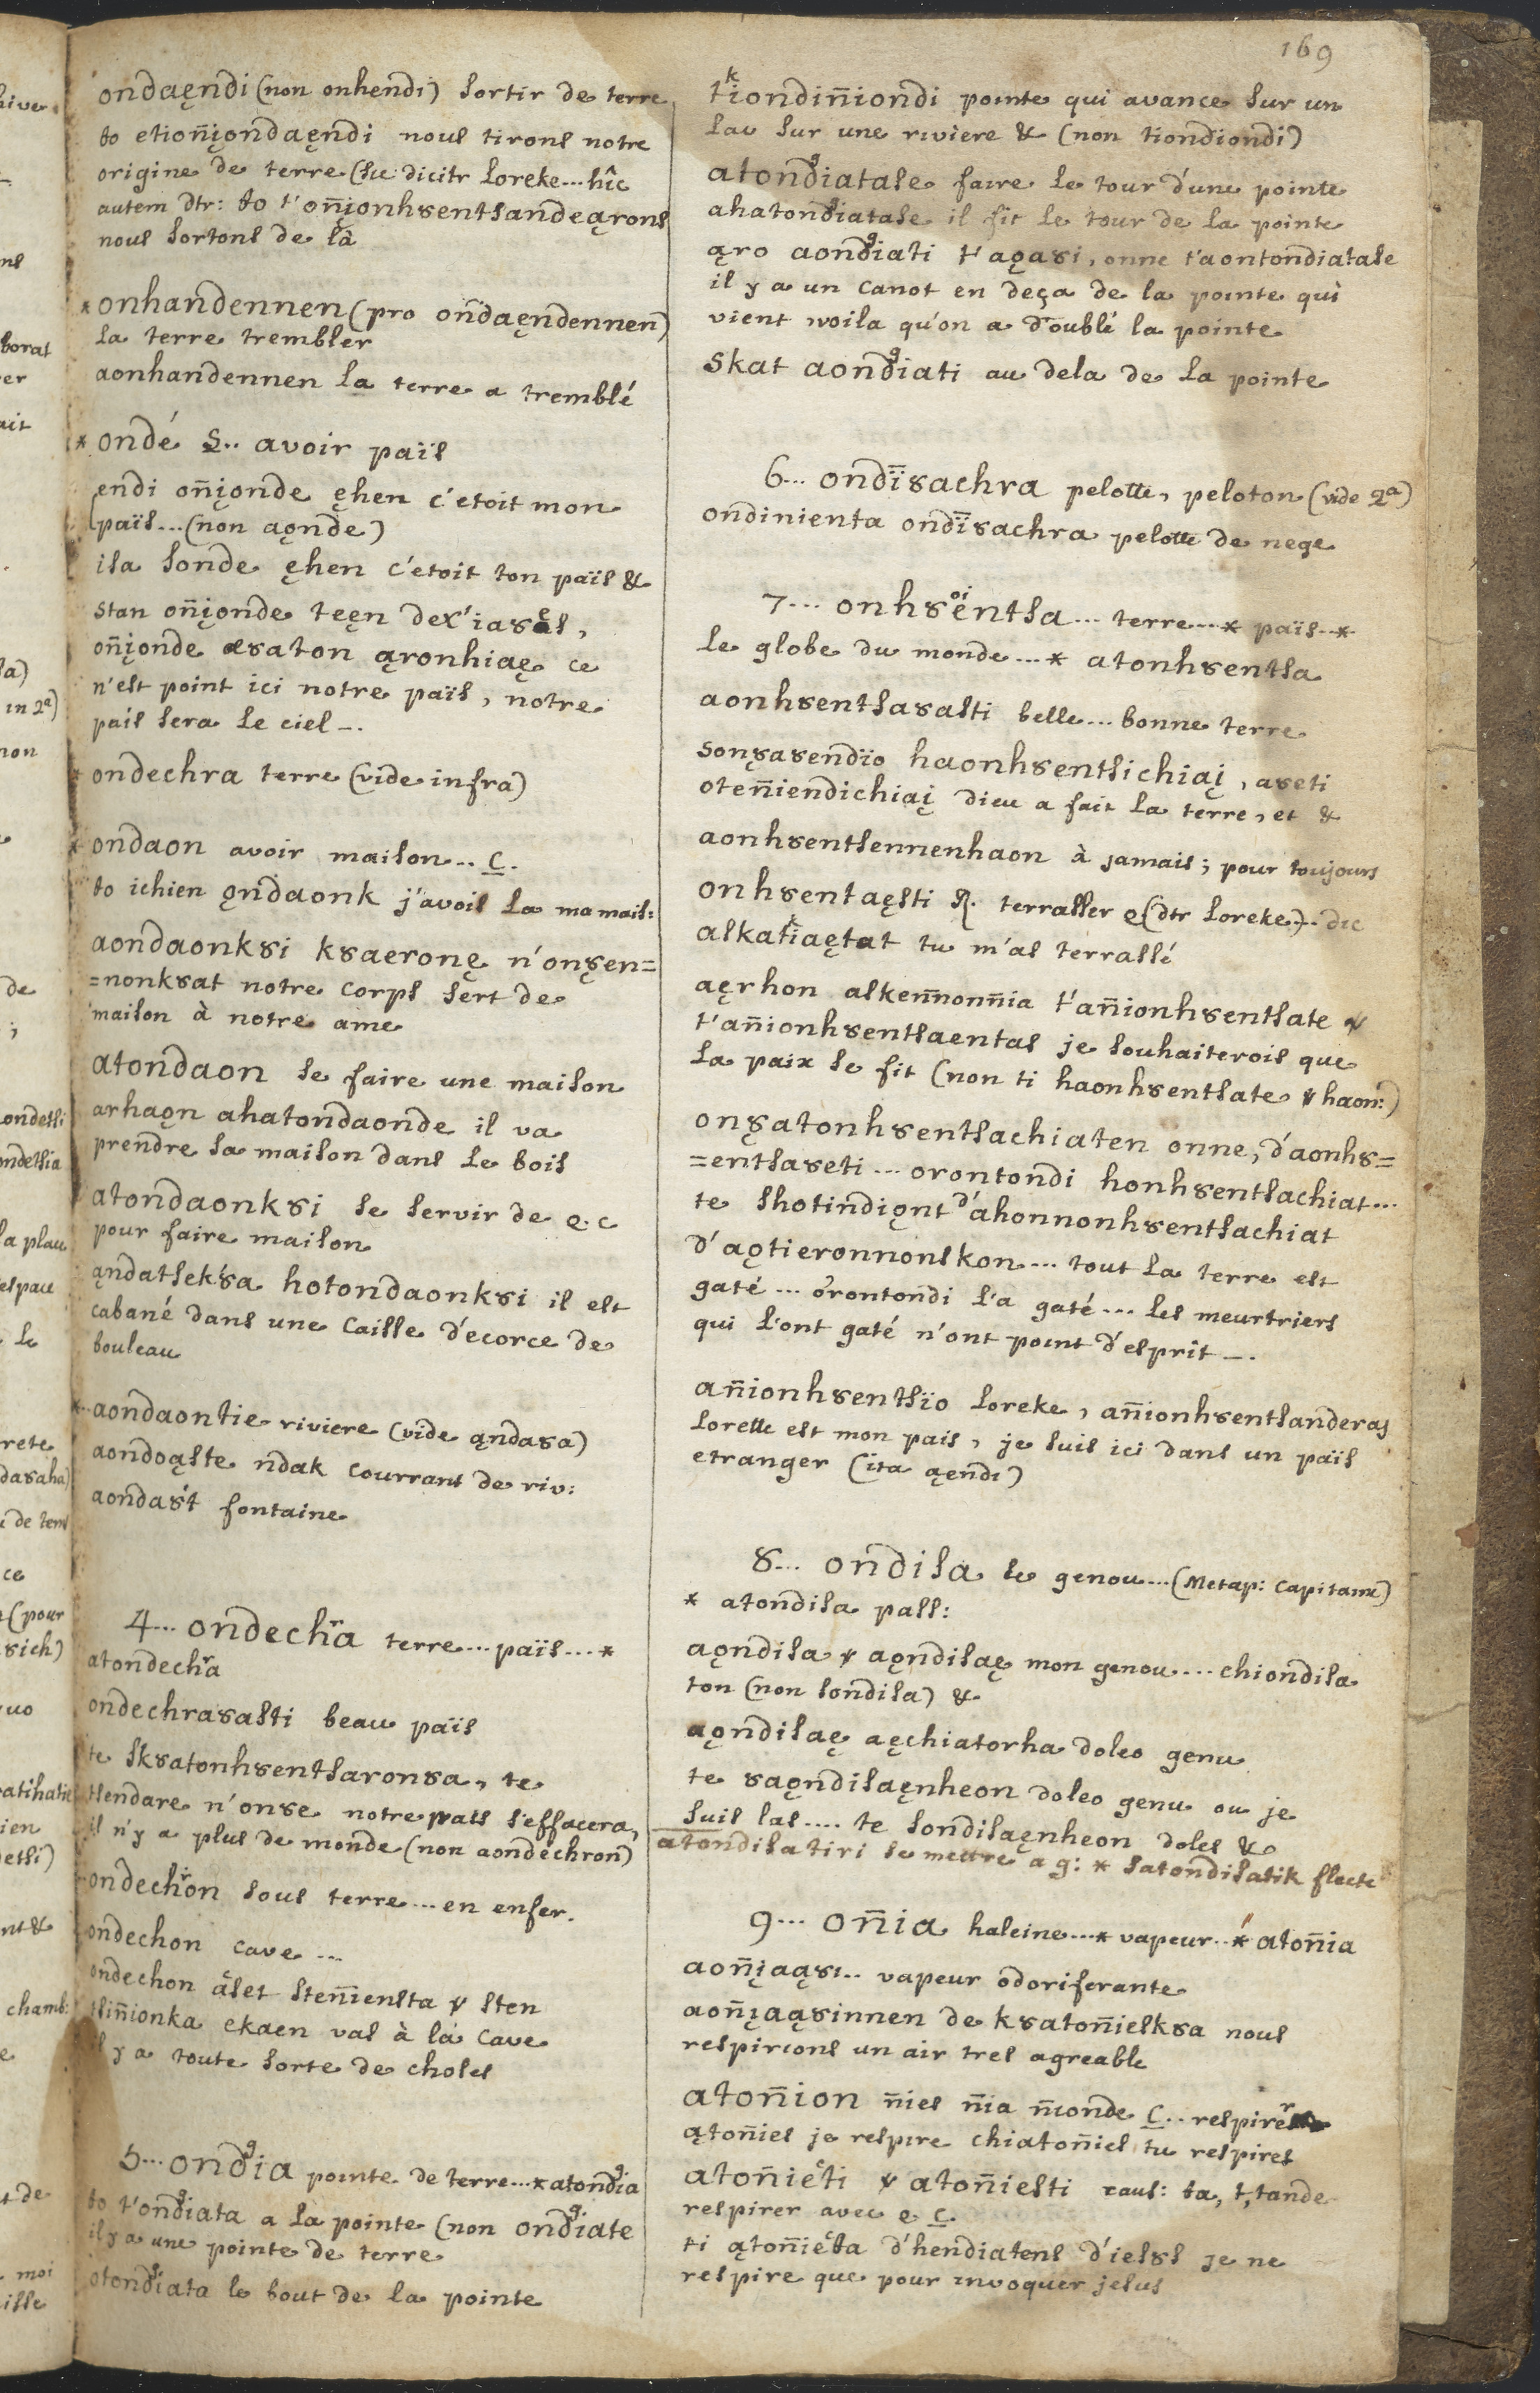 169
ondaęndi (non onhendi) sortir de terre
to etion̄įondaęndi nous tirons notre
origine de terre (sic dicitr Loreke... hîc
autem dtr: to t'on̄įonhȣentsandeąrons
nous sortons de là
* onhandennen (pro on̄daęndennen)
la terre trembler
aonhandennen la terre a tremblé
* ondé S.. avoir païs
endi on̄įonde ęhen c'etoit mon
païs... (non aǫnde)
isa sonde ęhen c'etoit ton païs &
stan on̄įonde teęn dex'iaȣes,
on̄įonde eȣaton ąronhiaę ce
n'est point ici notre païs, notre
païs sera le ciel _.
ondechra terre (vide infra)
* ondaon avoir maison.. C.
to ichien ǫndaonk j'avois la ma mais:
aondaonkȣi kȣaeronę n'onȣen=
=nonkȣat notre corps sert de
maison à notre ame
atondaon se faire une maison
arhaǫn ahatondaonde il va
prendre sa maison dans le bois
atondaonkȣi se servir de q.c
pour faire maison
ąndatsekȣa hotondaonkȣi il est
cabané dans une caisse d'ecorce de
bouleau
*.. aondaontie riviere (vide ąndaȣa)
aondoąste n̄dak courrant de riv:
aondaȣt fontaine
4... ondechr̄a terre.... païs....*
atondechr̄a
ondechraȣasti beau païs
te skȣatonhȣentsaronȣa, te
tsendare n'onȣe notre païs s'effacera,
il n'y a plus de monde (non aondechron)
ondechr̄on sous terre... en enfer.
ondechon cave ...
ondechon ăset sten̄iensta ɤ sten
tsin̄ionka ekaen vas à la cave
il y a toute sorte de choses
5... ondgia pointe de terre...* atondgia
to t'ondgiata a la pointe (non ondgiate
il y a une pointe de terre
otondgiata le bout de la pointe
tkiondin̄iondi pointe qui avance sur un
lac sur une rivière & (non tiondiondi)
atondgiatase faire le tour d'une pointe
ahatondgiatase il fit le tour de la pointe
ąro aondgiati t'aǫaȣi, onne t'aontondiatase
il y a un canot en deça de la pointe qui
vient voila qu'on a doublé la pointe
skat aondgiati au dela de la pointe
6... ondïȣachra pelotte, peloton (vide 2ª)
ondinienta ondïȣachra pelotte de nege
7... onhȣoientsa... terre...* païs..*
le globe du monde...* atonhȣentsa
aonhȣentsaȣasti belle... bonne terre
sonȣaȣendïo haonhȣentsichiaį, aȣeti
oten̄iendichiaį dieu a fait la terre, et &
aonhȣentsennenhaon à jamais; pour toujours
onhȣentaęsti R. terrasser q (dtr Loreke)... dic
askatkiaętat tu m'as terrassé
aęrhon asken̄non̄nia t'an̄ionhȣentsate ɤ
t'an̄ionhȣentsaentas je souhaiterois que
la paix se fit (non ti haonhȣentsate ɤ haon:)
onȣatonhȣentsachiaten onne, d'aonhȣ=
=entsaȣeti... orontondi honhȣentsachiat...
te shotindiǫnt d'ahonnonhȣentsachiat
d'aǫtieronnonskon... tout la terre est
gaté... orontondi l'a gaté... les meurtriers
qui l'ont gaté n'ont point d'esprit _.
an̄ionhȣentsïo Loreke, an̄ionhȣentsanderas
Lorette est mon pais, je suis ici dans un païs
etranger (ita ąendi)
8... ondisa le genou... (Metap: capitaine)
* atondisa pass:
aǫndisa ɤ aǫndisaę mon genou.... chiondisa
ton (non sondisa) &
aǫndisaę aęchiatorha doleo genu
te ȣaǫndisaęnheon doleo genu ou je
suis las.... te sondisaęnheon doles &
atondisatiri se mettre a g: * satondisatik flecte
9... on̄ia haleine...* vapeur..* aton̄ia
aon̄įaąȣi.. vapeur odoriferante
aon̄įaąȣinnen de kȣaton̄ieskȣa nous
respirions un air tres agreable
aton̄ion n̄ies n̄ia n̄ionde C.. respirer
ąton̄ies je respire chiaton̄ies tu respires
aton̄iĕti ɤ aton̄iesti caus: ta, t, tande
respirer avec q c.
ti ąton̄iĕta d'hendiatens d'iesȣs je ne
respire que pour invoquer jesus